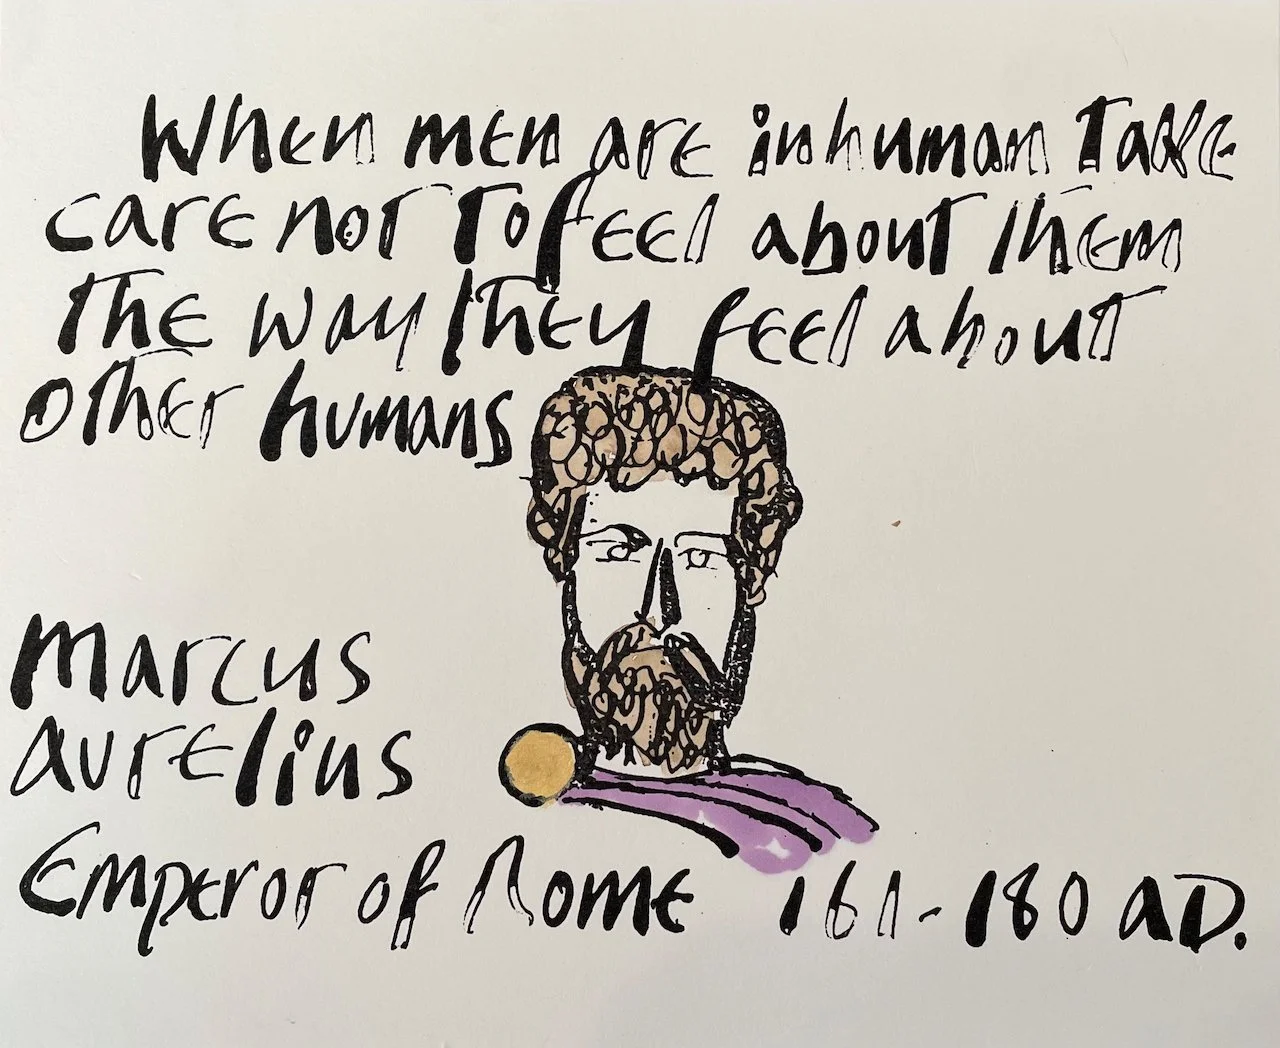 When men are inhuman Take
care not to feel about them
the way they feel about
other humans
Marcus
aurelius
Emperor of Rome 161-180 AD.